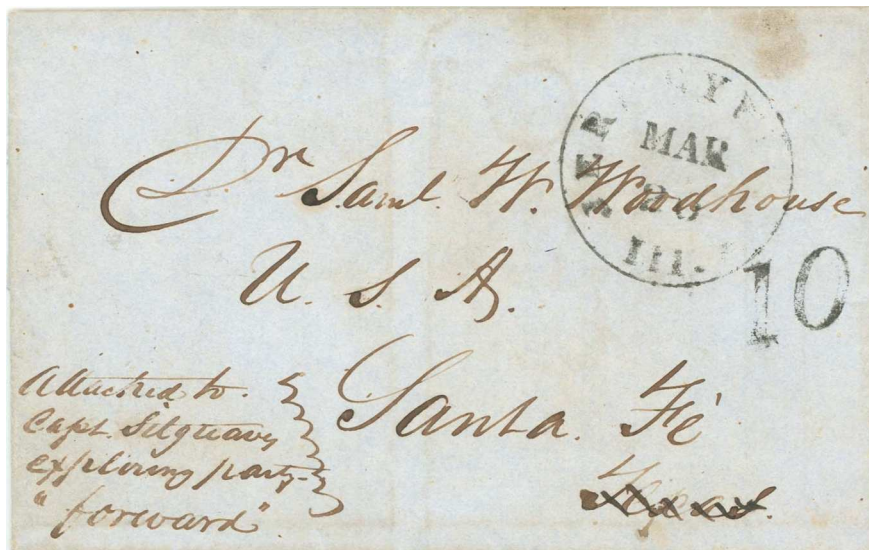 MAR
Ill.
Dr Saml. W. Woodhouse
U. S. A.
10
Santa Fé
Texas.
Attached to
Capt. Sitgreaves
exploring party
"forward"